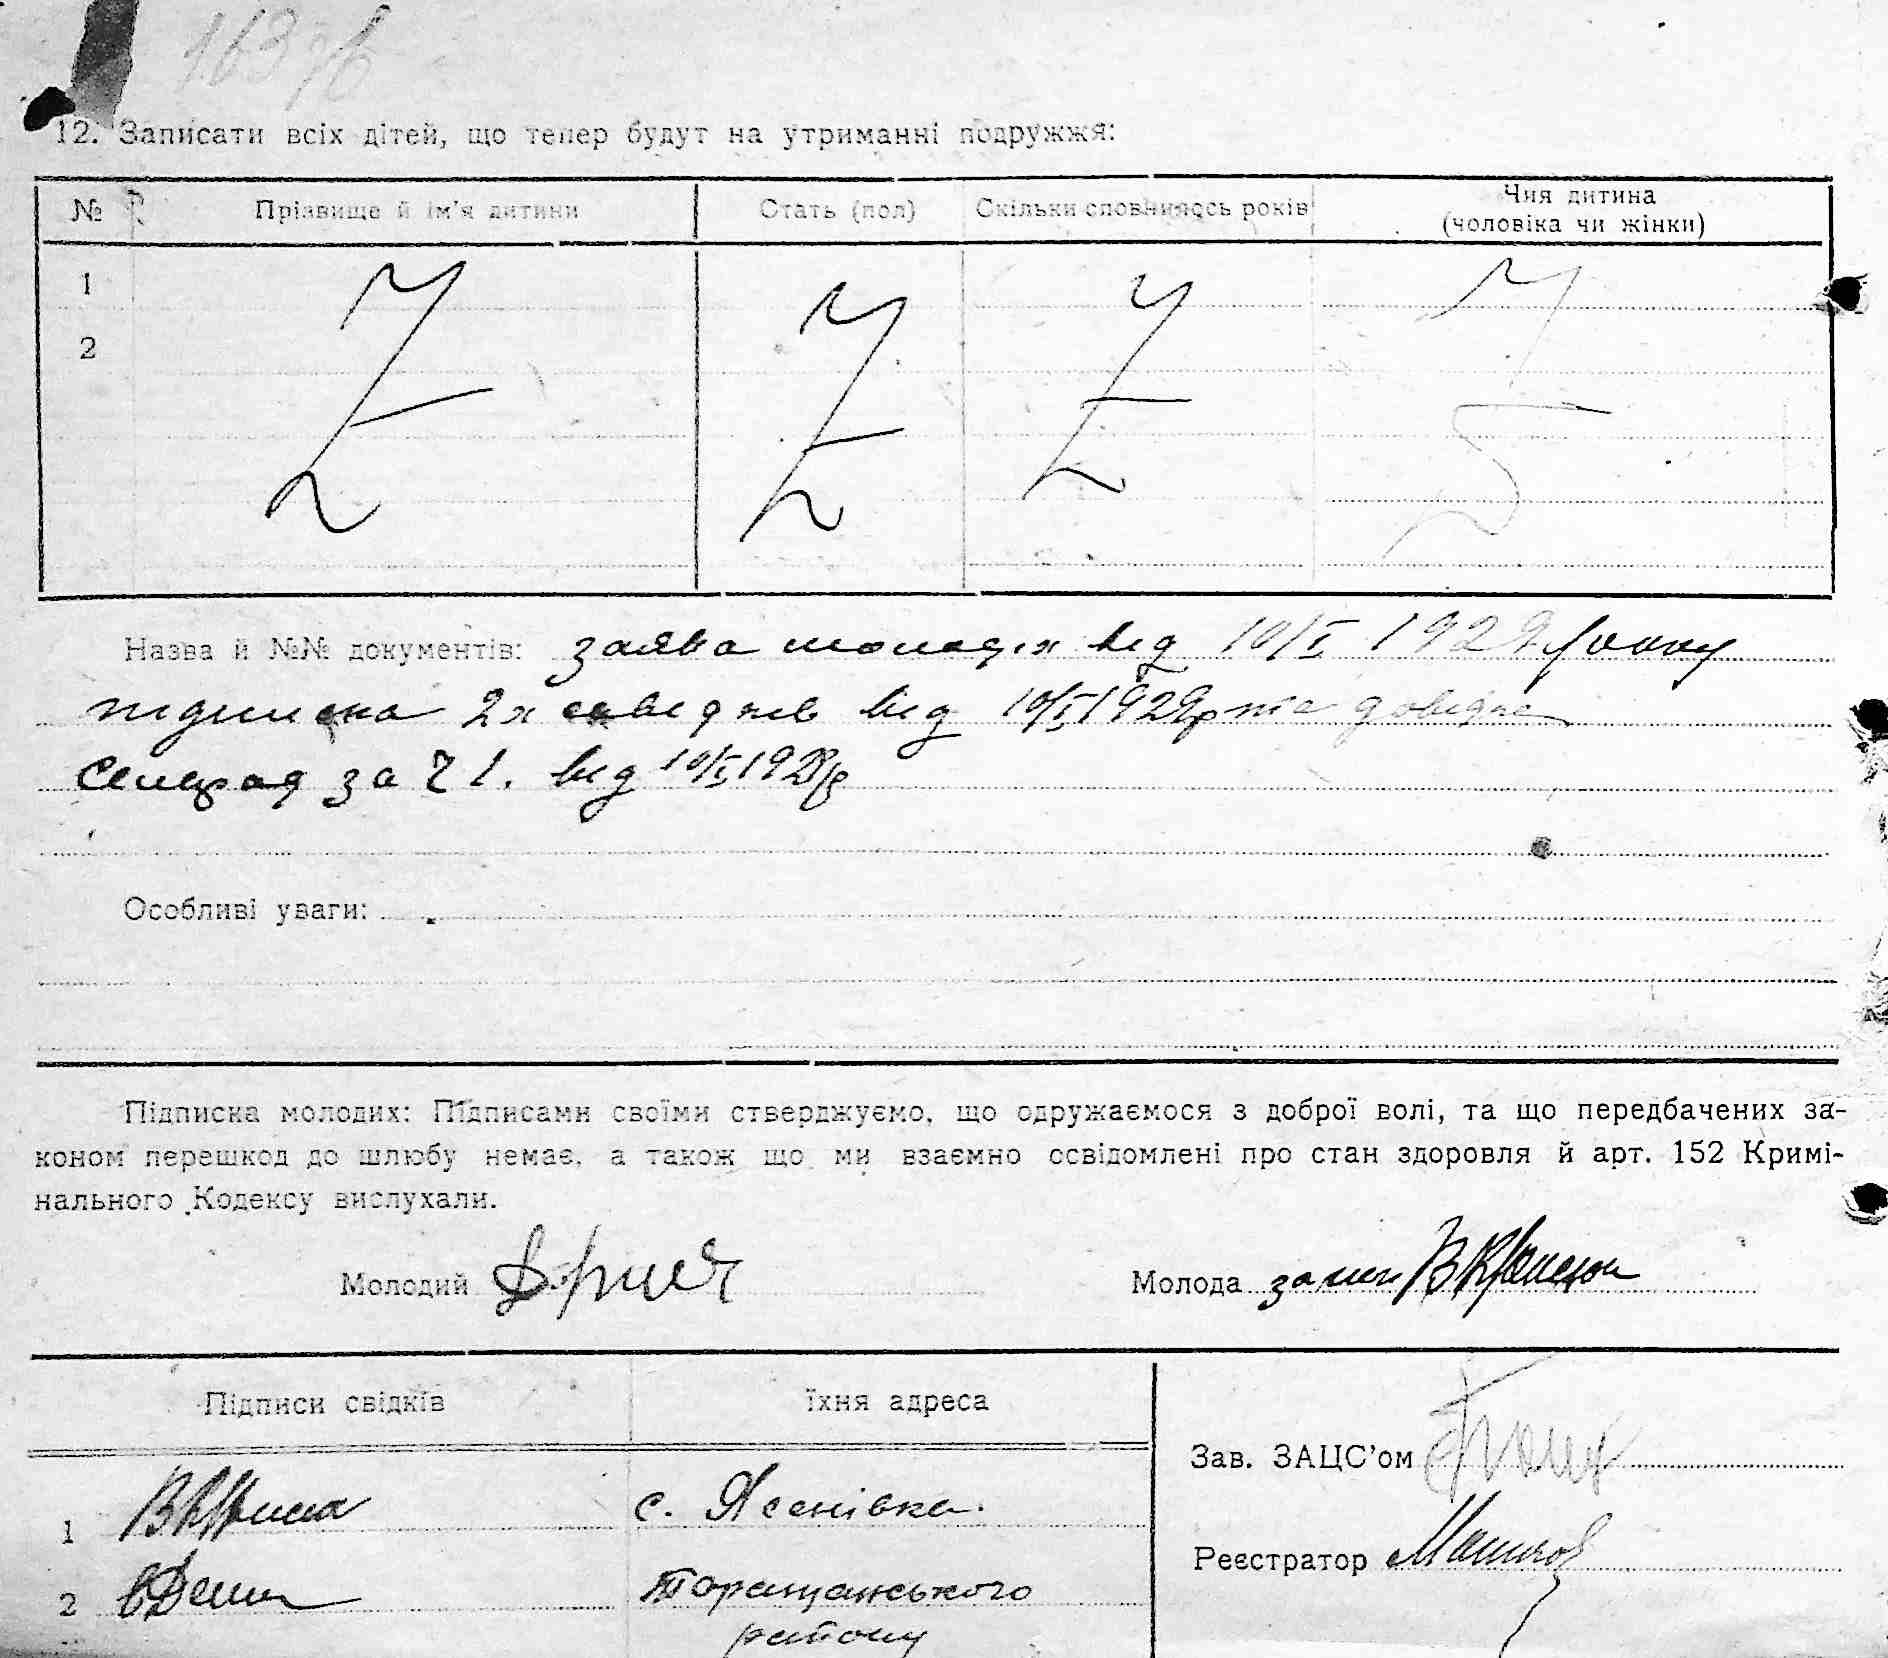 163 зв
12. Записати всіх дітей, що тепер будут на утриманні подружжя:
№ Прізвище й ім'я дитини Стать (пол) Скільки сповнилось років Чия дитина
(чоловіка чи жінки)
1
2
Назва й №№ документів: заява молодих від 10/I 1929 року
підписка 2х свідків від 10/I 1929р та довідка
Сельрад за № 1. від 10/I 1929р
Особливі уваги:
Підписка молодих: Підписами своїми стверджуємо, що одружаємося з доброї волі, та що передбачених за-
коном перешкод до шлюбу немає, а також що ми взаємно освідомлені про стан здоровля й арт. 152 Кримі-
нального Кодексу вислухали.
Молодий Молода за неи
Підписи свідків Їхня адреса
Зав. ЗАЦС'ом
1 с. Ясенівка.
Реєстратор
2 Таращанського
району